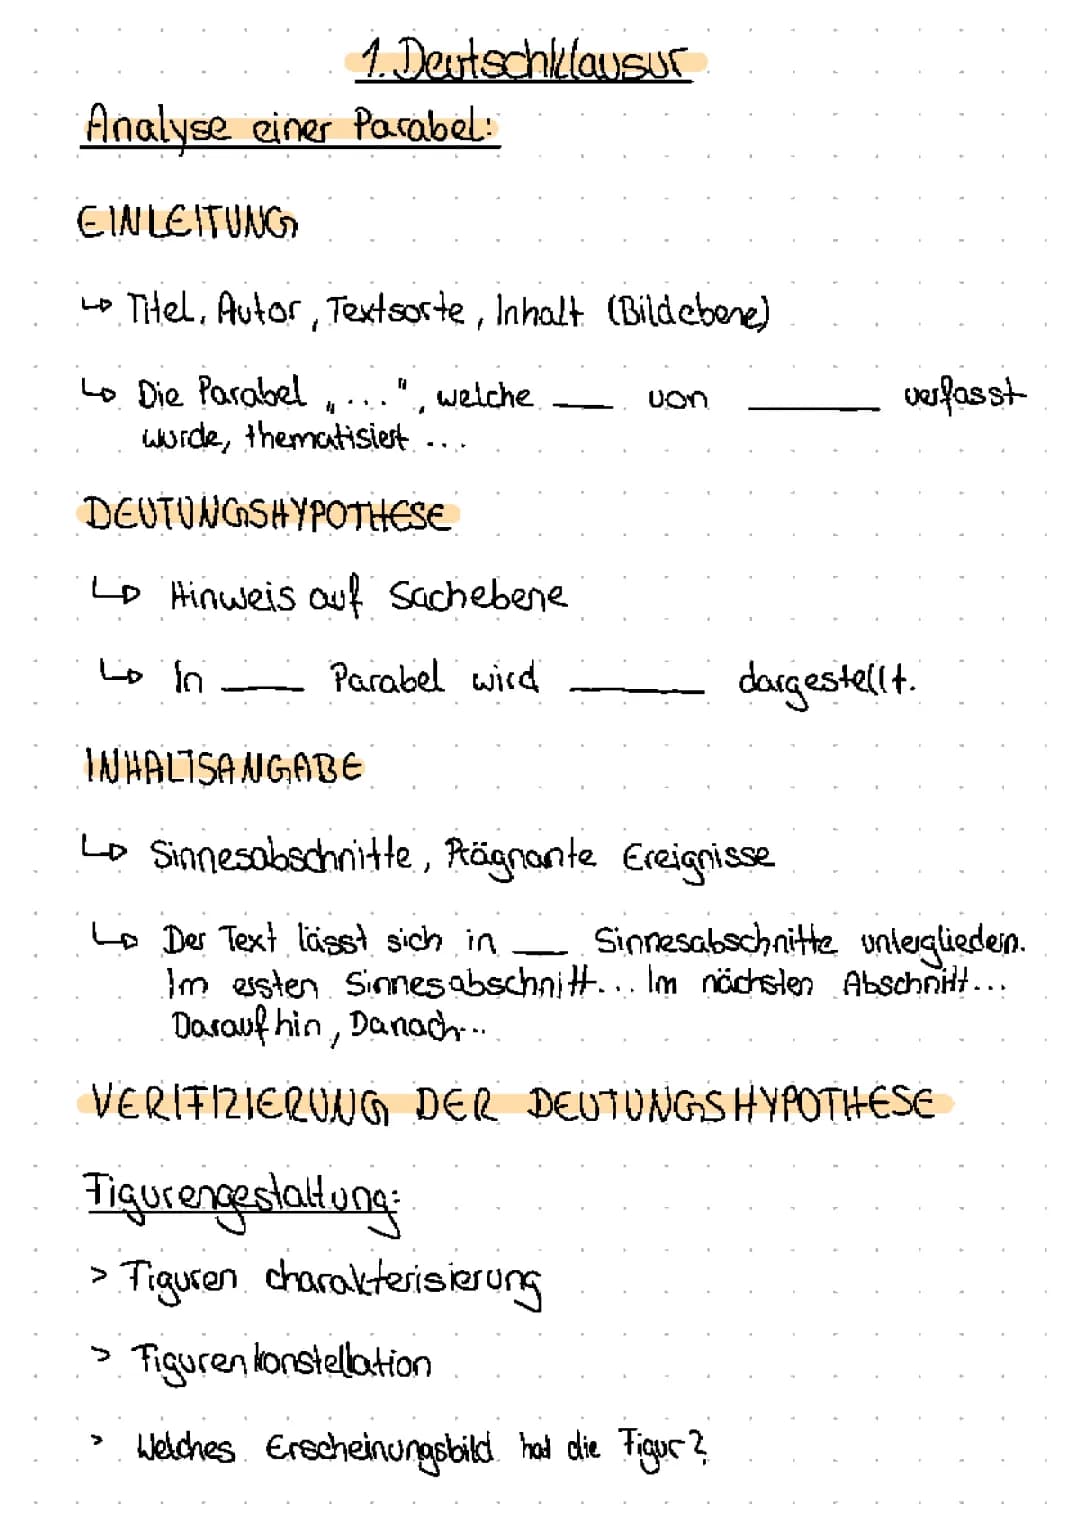 1. Deutschklausur
Analyse einer Parabel:
EINLEITUNG
↳ Titel, Autor, Textsorte, Inhalt (Bildebene)
↳ Die Parabel „...", welche ___ von _____ verfasst
wurde, thematisiert ...
DEUTUNGSHYPOTHESE
↳ Hinweis auf Sachebene
↳ In ___ Parabel wird _____ dargestellt.
INHALTSANGABE
↳ Sinnesabschnitte, Prägnante Ereignisse
↳ Der Text lässt sich in ___ Sinnesabschnitte untergliedern.
Im ersten Sinnesabschnitt... Im nächsten Abschnitt...
Daraufhin, Danach...
VERIFIZIERUNG DER DEUTUNGSHYPOTHESE
Figurengestaltung:
> Figuren charakterisierung
> Figurenkonstellation
> Welches Erscheinungsbild hat die Figur?